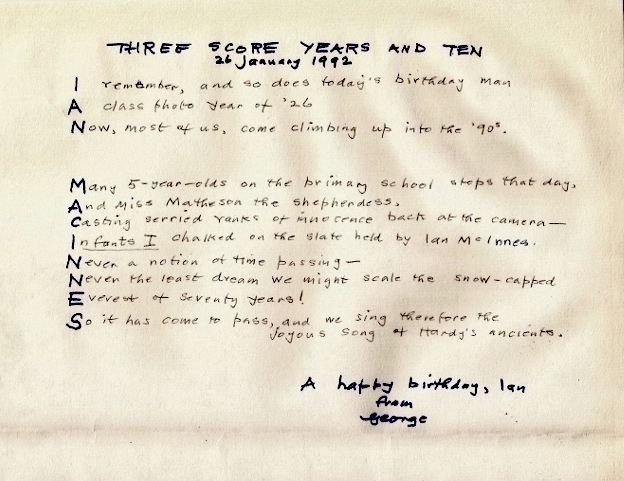 THREE SCORE YEARS AND TEN
26 January 1992
I remember, and so does today's birthday man
A class photo year of '26
Now, most of us, come climbing up into the '90s.
Many 5-year-olds on the primary school steps that day,
And Miss Matheson the shepherdess,
Casting serried ranks of innocence back at the camera—
Infants I chalked on the slate held by Ian McInnes.
Never a notion of time passing—
Never the least dream we might scale the snow-capped
Everest of Seventy years!
So it has come to pass, and we sing therefore the
joyous song of Hardy's ancients.
A happy birthday, Ian
from
George